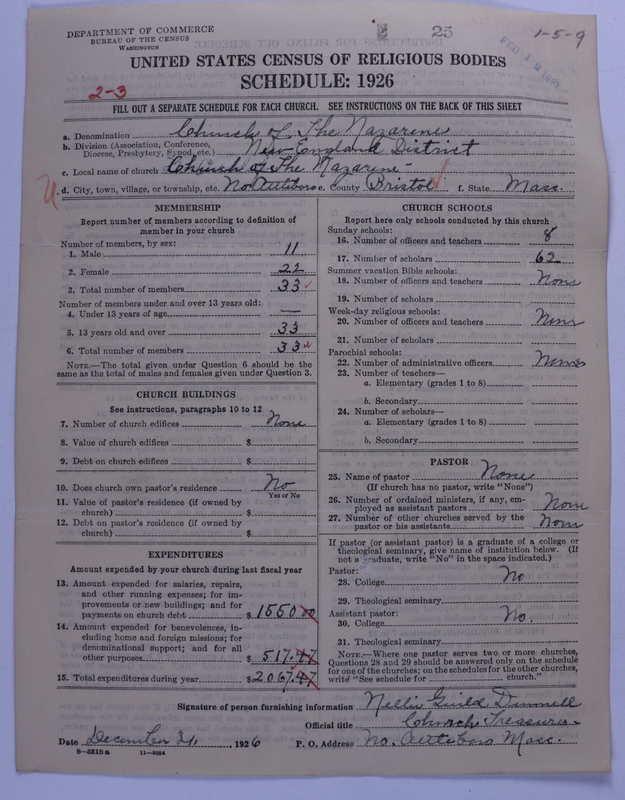 DEPARTMENT OF COMMERCE
BUREAU OF THE CENSUS
WASHINGTON
25
1-5-9
UNITED STATES CENSUS OF RELIGIOUS BODIES
SCHEDULE: 1926
2-3
FILL OUT A SEPARATE SCHEDULE FOR EACH CHURCH. SEE INSTRUCTIONS ON THE BACK OF THIS SHEET
a. Denomination Church of The Nazarene
b. Division (Association, Conference, Diocese, Presbytery, Synod, etc.) New England District
c. Local name of church Church of The Nazarene
d. City, town, village, or township, etc. No Attleboro e. county Bristol f. State Mass.
MEMBERSHIP
Report number of members according to definition of
member in your church
Number of members, by sex:
1. Male 11
2. Female 22
3. Total number of members 33
Number of members under and over 13 years old:
4. Under 13 years of age —
5. 13 years old and over 33
6. Total number of members 33
NOTE.—The total given under Question 6 should be
same as the total of males and females given under Question 3.
CHURCH BUILDINGS
See instructions, paragraphs 10 to 12
7. Number of church edifices None
8. Value of church edifices $
9. Debt on church edifices $
10. Does church own pastor's residence No
Yes or No
11. Value of pastor's residence (if owned by
church) $
12. Debt on pastor's residence (if owned by
church) $
EXPENDITURES
Amount expended by your church during last fiscal year
13. Amount expended for salaries, repairs,
and other running expenses; for im-
provements or new buildings; and for
payments on church debt $ 1550.00
14. Amount expended for benevolences, in-
cluding home and foreign missions; for
denominational support; and for all
other purposes $ 517.47
15. Total expenditures during year $ 2067.47
CHURCH SCHOOLS
Report here only schools conducted by this church
Sunday schools:
16. Number of officers and teachers 8
17. Number of scholars 62
Summer vacation Bible schools:
18. Number of officers and teachers None
19. Number of scholars
Week-day religious schools:
20. Number of officers and teachers None
21. Number of scholars
Parochial schools:
22. Number of administrative officers None
23. Number of teachers—
a. Elementary (grades 1 to 8)
b. Secondary
24. Number of scholars—
a. Elementary (grades 1 to 8)
b. Secondary
PASTOR
25. Name of pastor None
(If church has no pastor, write "None")
26. Number of ordained ministers, if any, em-
ployed as assistant pastors None
27. Number of other churches served by the
pastor or his assistants None
If pastor (or assistant pastor) is a graduate of a college or
theological seminary, give name of institution below. (If
not a graduate, write "No" in the space indicated.)
Pastor:
28. College No
29. Theological seminary
Assistant pastor:
30. College No.
31. Theological seminary
NOTE.—Where one pastor serves two or more churches,
Questions 28 and 29 should be answered only on the schedule
for one of the churches; on the schedules for the other churches,
write "See schedule for church."
Signature of person furnishing information Nellie Guild
Official title Church Treasurer
Date December 31, 1926 P. O. Address No. Attleboro Mass.
8—5518a 11—9034